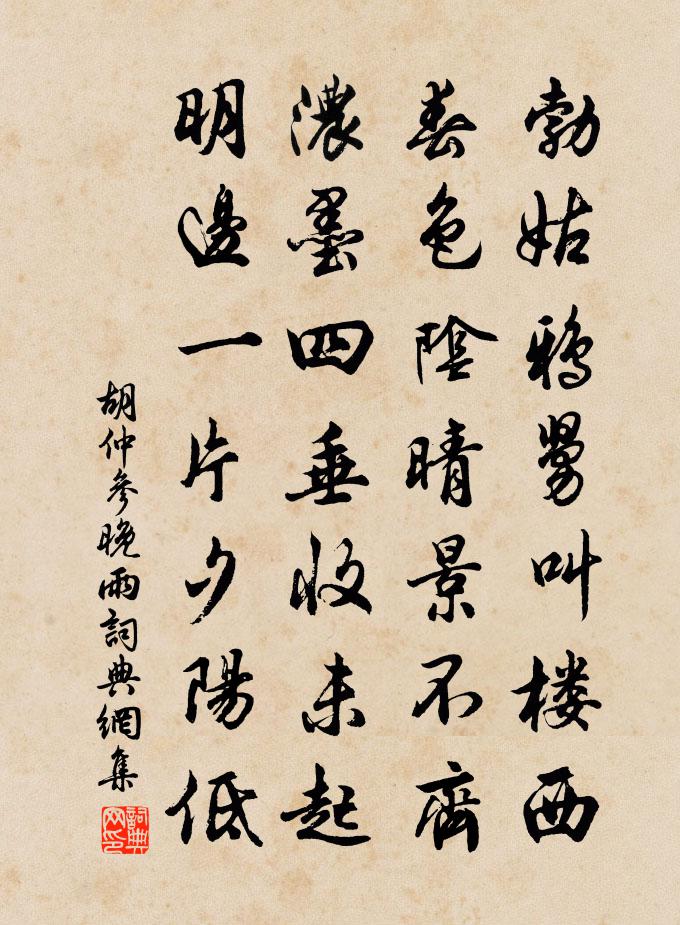 勃姑鴉舅叫楼西
春色陰晴景不齊
濃墨四垂收未起
明邊一片夕陽低
胡仲參晚雨詞典網集
詞典
网印